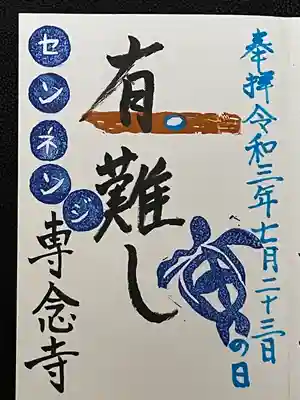 奉拝令和三年七月二十三日
の日
有難し
センネンジ
専念寺